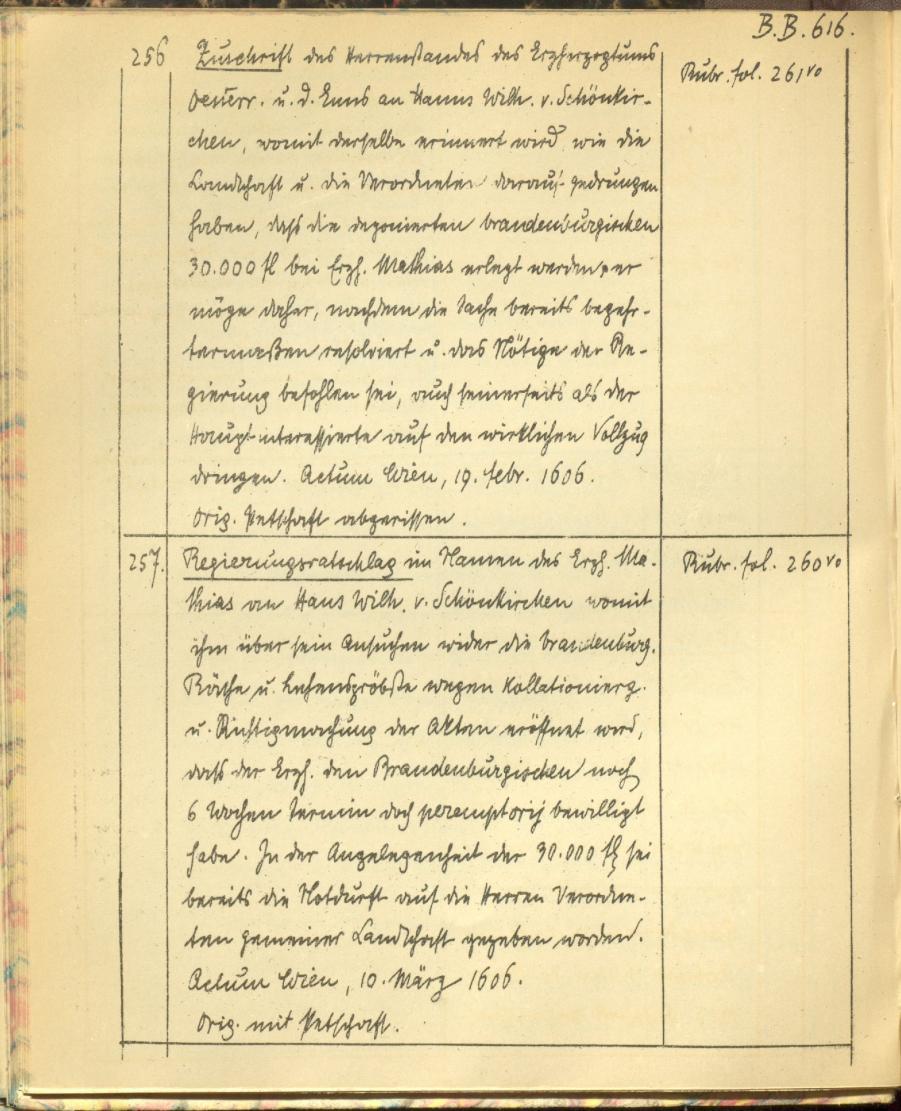 B.B. 616.
256 Zuschrift des Herrenstandes des Erzherzogtums
Oesterr. u. d. Enns an Hanns Wilh. v. Schönkir-
chen, womit derselbe erinnert wird, wie die
Landschaft u. die Verordneten darauf gedrungen
haben, dass die deponierten brandenburgischen
30.000 fl bei Erzh. Mathias erlegt werden, er
möge daher, nachdem die Sache bereits begehr-
termaßen resolviert u. das Nötige der Re-
gierung befohlen sei, auch seinerseits als der
Hauptinteressierte auf den wirklichen Vollzug
dringen. Actum Wien, 19. febr. 1606.
Orig. Petschaft abgerissen.
Rubr. fol. 261 vo
257. Regierungsratschlag im Namen des Erzh. Ma-
thias an Hans Wilh. v. Schönkirchen womit
ihm über sein Ansuchen wider die brandenburg.
Räthe u. Lehenspröbste wegen Kollationierg.
u. Richtigmachung der Akten eröffnet wird,
dass der Erzh. den Brandenburgischen noch
6 Wochen Termin doch peremptorij bewilligt
habe. In der Angelegenheit der 30.000 fl sei
bereits die Notdurft auf die Herren Verordne-
ten gemeiner Landschaft gegeben worden.
Actum Wien, 10. März 1606.
Orig. mit Petschaft.
Rubr. fol. 260 vo